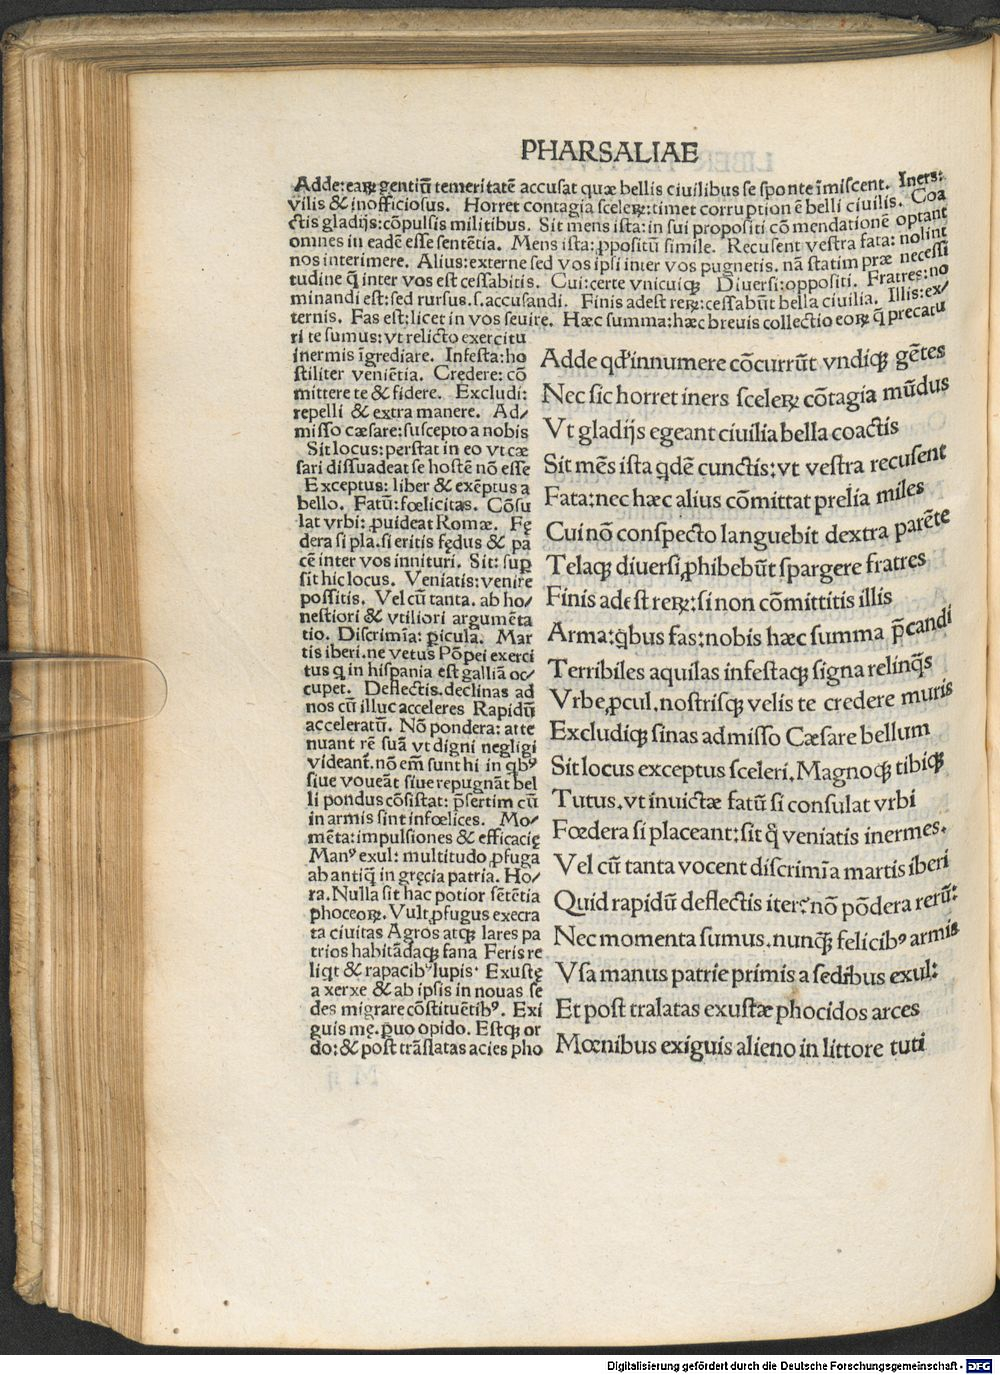 PHARSALIAE
Adde:eaꝝ gentiū temeritatē accusat quæ bellis ciuilibus se sponte īmiscent. Iners:
vilis & inofficiosus. Horret contagia sceleꝝ:timet corruptionē belli ciuilis. Coa
ctis gladijs:cōpulsis militibus. Sit mens ista:in sui propositi cōmendationē optant
omnes in eadē esse sentētia. Mens ista:ꝓpositū simile. Recusent vestra fata: nolint
nos interimere. Alius:externe sed vos ipsi inter vos pugnetis. nā statim præ necessi
tudine q̄ inter vos est cessabitis. Cui:certe vnicuiqꝫ Diuersi:oppositi. Fratres:no
minandi est:sed rursus.s.accusandi. Finis adest reꝝ:cessabūt bella ciuilia. Illis:ex/
ternis. Fas est:licet in vos seuire. Hæc summa:hæc breuis collectio eoꝝ q̄ precatu
ri te sumus:vt relicto exercitu
inermis īgrediare. Infesta:ho
stiliter veniētia. Credere: cō
mittere te & fidere. Excludi:
repelli & extra manere. Ad/
misso cæsare:suscepto a nobis
Sit locus:perstat in eo vt cæ
sari dissuadeat se hostē nō esse
Exceptus: liber & exēptus a
bello. Fatū:fœlicitas. Cōsu
lat vrbi: ꝓuideat Romæ. Fę
dera si pla.si eritis fędus & pa
cē inter vos innituri. Sit: suꝑ
sit hic locus. Veniatis:venire
possitis. Vel cū tanta. ab ho/
nestiori & vtiliori argumēta
tio. Discrimīa: ꝑicula. Mar
tis iberi.ne vetus Pōpei exerci
tus q in hispania est galliā oc/
cupet. Deflectis.declinas ad
nos cū illuc acceleres Rapidū
acceleratū. Nō pondera: atte
nuant rē suā vt digni negligi
videant̄.nō em̄ sunt hi in qbꝰ
siue voueāt siue repugnāt bel
li pondus cōsistat: p̄sertim cū
in armis sint infœlices. Mo/
mēta:impulsiones & efficacię
Manꝰ exul: multitudo ꝓfuga
ab antiq̄ in gręcia patria. Ho/
ra.Nulla sit hac potior sētētia
phoceoꝝ. Vult ꝓfugus execra
ta ciuitas Agros atqꝫ lares pa
trios habitādaqꝫ fana Feris re
liqt & rapacibꝰ lupis· Exustę
a xerxe & ab ipsis in nouas se
des migrare cōstituētibꝰ. Exi
guis mę.ꝑuo opido. Estqꝫ or
do:& post trāslatas acies pho
Adde qd̓ innumere cōcurrūt vndiqꝫ gētes
Nec sic horret iners sceleꝝ cōtagia mūdus
Vt gladijs egeant ciuilia bella coactis
Sit mēs ista qdē cunctis:vt vestra recusent
Fata:nec hæc alius cōmittat prelia miles
Cui nō conspecto languebit dextra parēte
Telaqꝫ diuersi ꝓhibebūt spargere fratres
Finis adest reꝝ:si non cōmittitis illis
Arma:qbus fas:nobis hæc summa p̄candi
Terribiles aquilas infestaqꝫ signa relinqs
Vrbe ꝓcul.nostrisqꝫ velis te credere muris
Excludiqꝫ sinas admisso Cæsare bellum
Sit locus exceptus sceleri.Magnoqꝫ tibiqꝫ
Tutus.vt inuictæ fatū si consulat vrbi
Fœdera si placeant:sit q̄ veniatis inermes.
Vel cū tanta vocent discrimīa martis iberi
Quid rapidū deflectis iter?nō pōdera rerū:
Nec momenta sumus.nunq̄ꝫ felicibꝰ armis
Vsa manus patrie primis a sedibus exul:
Et post tralatas exustæ phocidos arces
Mœnibus exiguis alieno in littore tuti
Digitalisierung gefördert durch die Deutsche Forschungsgemeinschaft - DFG